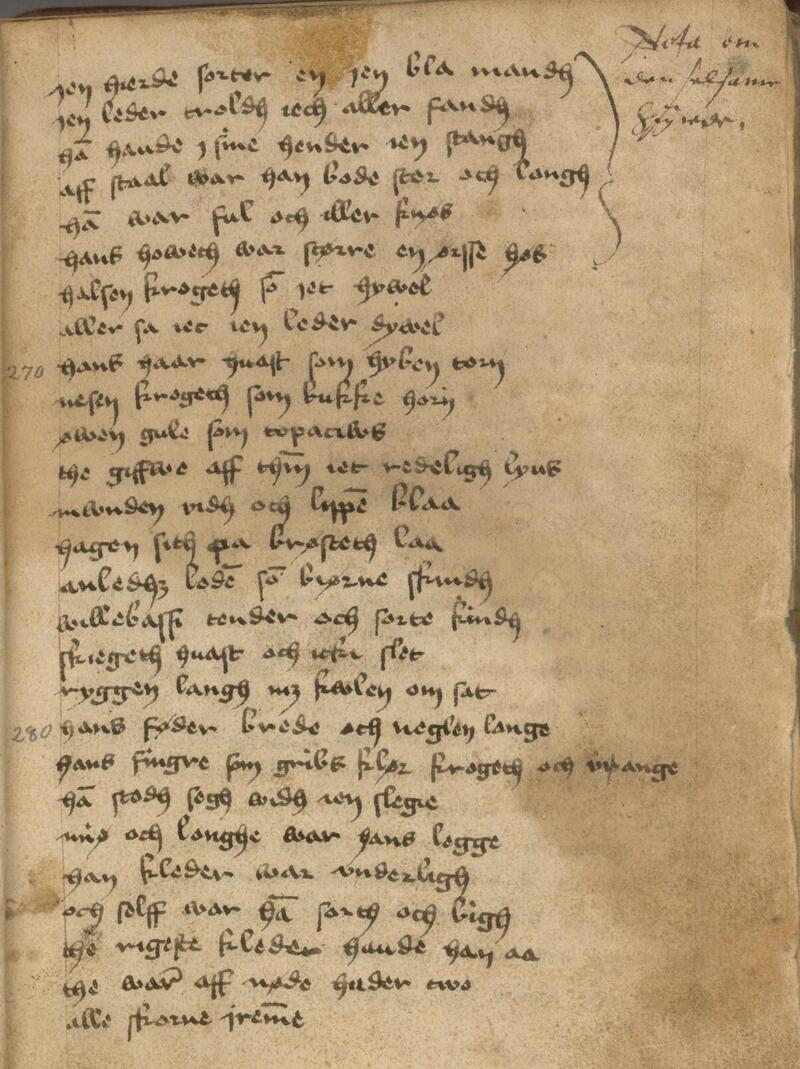 jen hierde sorter en jen bla mandh
jen leder troldh iech aller fandh
hā haude j sine hender ien stangh
aff staal war han bode stor och langh
hā war ful och iller knøs
hans howeth war større en ørsse høs
halsen krogeth sō jet hywel
aller sa iet ien leder dywel
270 hans haar huast som hyben torn
nesen krogeth som bukke horn
øwen gule som topaciws
the giffwe aff thm̄ iet redeligh lyus
mwnden vidh och lippē blaa
hagen sith pa brøsteth laa
anledhz lodē sō biørne skindh
willebasse tender och sorte kindh
skiegeth huast och icki slet
ryggen langh mz kwlen om sat
280 hans føder brede och neglen lange
hans fingre som gribs klør krogeth och wrange
hā stodh segh widh ien slegie
och longhe war hans legge
han kleder war vnderligh
och selff war hā sorth och bigh
the rigeste kleder haude han aa
the war aff nøde huder two
alle skorne jremē
Nota om
den selsame